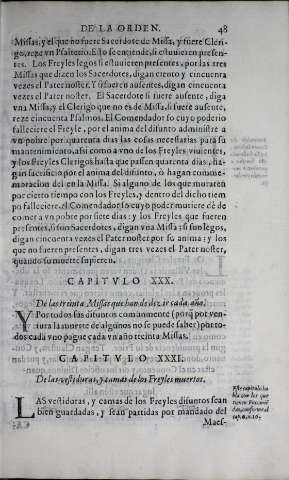 DE LA ORDEN. 48
Missas, y el que no fuere Sacerdote de Missa, y fuere Cleri-
go, reze vn Psalterio. Esto se entiende, si estuuieren presen-
tes. Los Freyles legos si estuuieren presentes, por las tres
Missas que dizen los Sacerdotes, digan ciento y cincuenta
vezes el Pater noster. Y si fueren ausentes, digan cincuenta
vezes el Pater noster. El Sacerdote si fuere ausente, diga
vna Missa, y el Clerigo que no es de Missa, si fuere ausente,
reze cincuenta Psalmos. El Comendador so cuyo poderio
falleciere el Freyle, por el anima del difunto administre a
vn pobre por quarenta dias las cosas necessarias para su
mantenimiento, assi como a vno de los Freyles viuientes,
y los Freyles Clerigos hasta que passen quarenta dias, ha-
gan sacrificio por el anima del difunto, ò hagan comme-
moracion del en la Missa. Si alguno de los que moraren
por cierto tiempo con los Freyles, y dentro del dicho tiem
po falleciere, el Comendador so cuyo poder muriere dè de
comer a vn pobre por siete dias: y los Freyles que fueren
presentes, si son Sacerdotes, digan vna Missa: si son legos,
digan cincuenta vezes el Pater noster por su anima: y los
que no fueren presentes, digan tres vezes el Pater noster,
quando su muerte supieren.
CAPITVLO XXX.
De las treinta Missas que han de dezir cada año.
Y Por todos los difuntos comunmente (porq̃ por ven-
tura la muerte de algunos no se puede saber) por to-
dos cada vno pague cada vn año treinta Missas.
CAPITVLO XXXI.
De las vestiduras, y camas de los Freyles muertos.
LAS vestiduras, y camas de los Freyles difuntos sean
bien guardadas, y sean partidas por mandado del
Maes-
Este capitulo ha
bla con los que